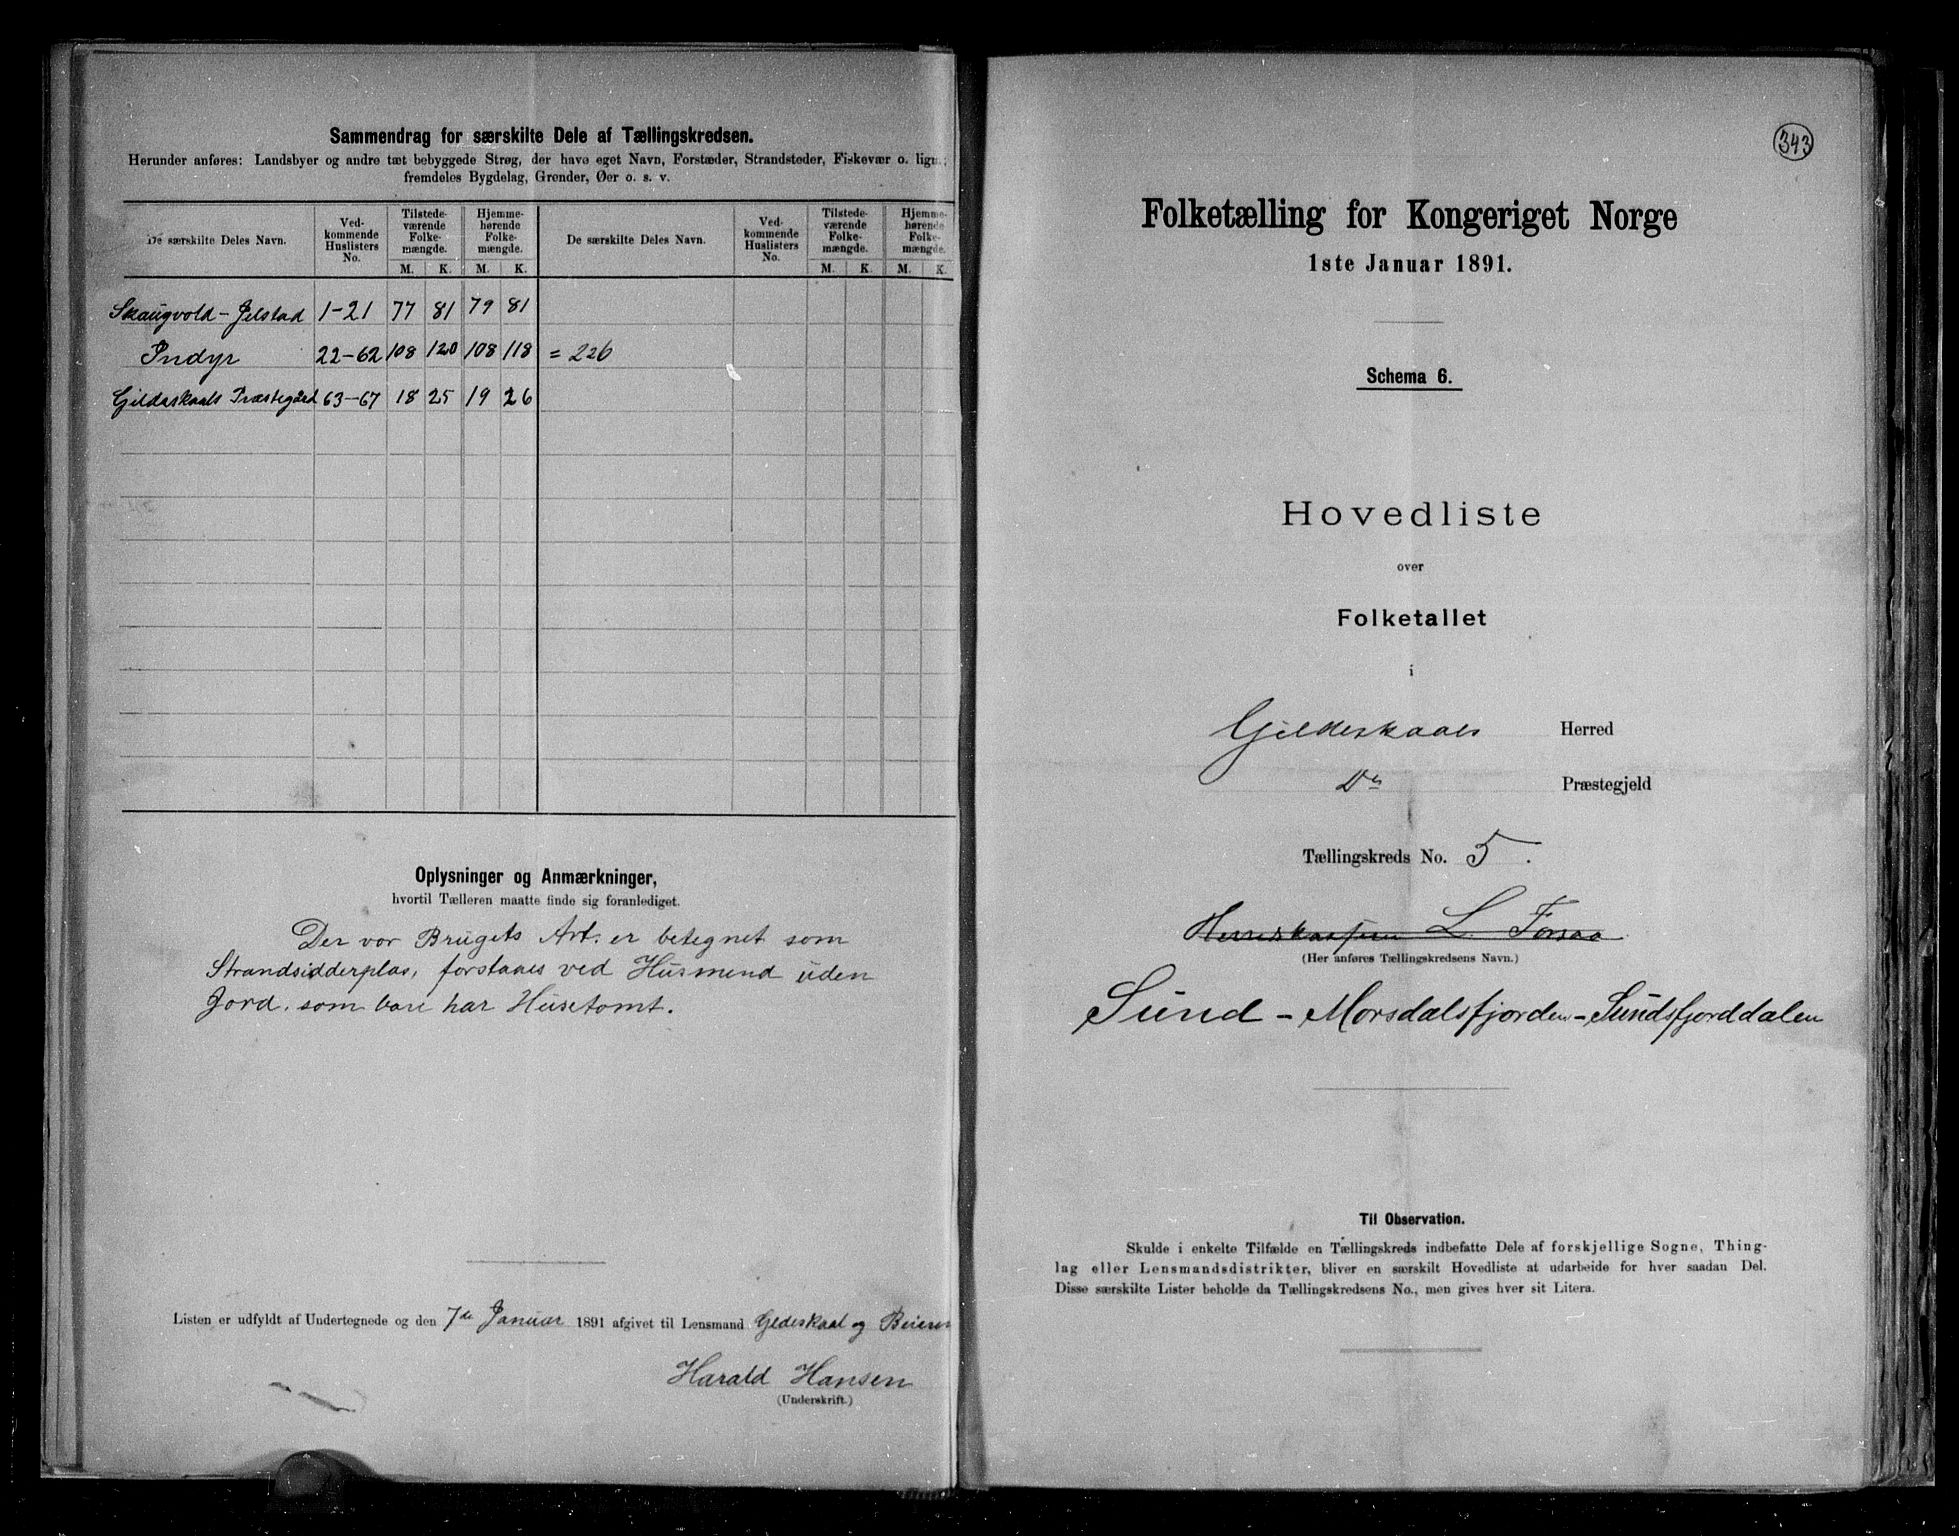 Sammendrag for særskilte Dele af Tællingskredsen.
Herunder anføres: Landsbyer og andre tæt bebyggede Strøg, der have eget Navn, Forstæder, Strandsteder, Fiskevær o. lign.;
fremdeles Bygdelag, Grender, Øer o. s. v.
De særskilte Deles Navn. Ved-kommende Huslisters No. Tilstede-værende Folke-mængde. Hjemme-hørende Folke-mængde. De særskilte Deles Navn. Ved-kommende Huslisters No. Tilstede-værende Folke-mængde. Hjemme-hørende Folke-mængde.
M. K. M. K. M. K. M. K.
Skaugvold - Jelstad 1-21 77 81 79 81
Indyr 22-62 108 120 108 118 = 226
Gildeskaals Præstegård 63-67 18 25 19 26
Oplysninger og Anmærkninger,
hvortil Tælleren maatte finde sig foranlediget.
Der vor Brugets Art. er betegnet som
Strandsidderplas, forstaaes ved Husmend uden
Jord. som bare har Husetomt.
Listen er udfyldt af Undertegnede og den 7de Januar 1891 afgivet til Lensmand Gildeskaal og Beieren
Harald Hansen
(Underskrift.)
343
Folketælling for Kongeriget Norge
1ste Januar 1891.
Schema 6.
Hovedliste
over
Folketallet
i
Gildeskaals Herred
Do Præstegjeld
Tællingskreds No. 5.
L. Forsaa
(Her anføres Tællingskredsens Navn.)
Sund - Morsdalsfjorden - Sundsfjorddalen
Til Observation.
Skulde i enkelte Tilfælde en Tællingskreds indbefatte Dele af forskjellige Sogne, Thing-
lag eller Lensmandsdistrikter, bliver en særskilt Hovedliste at udarbeide for hver saadan Del.
Disse særskilte Lister beholde da Tællingskredsens No., men gives hver sit Litera.